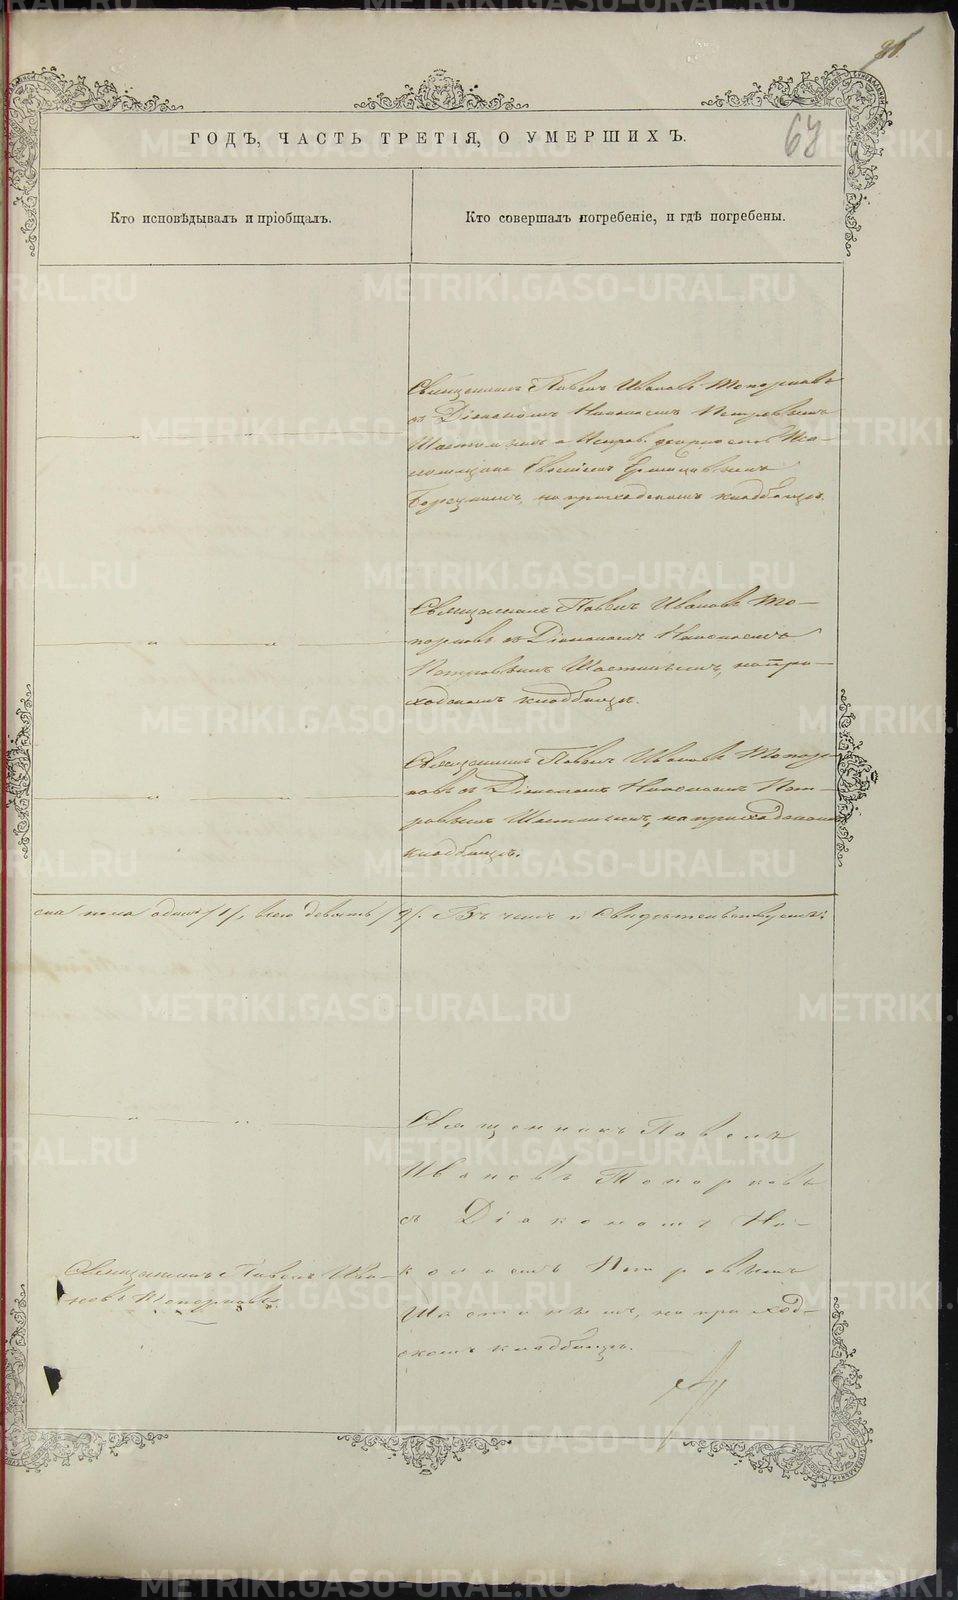 67
ГОДЪ, ЧАСТЬ ТРЕТІЯ, О УМЕРШИХЪ.
Кто исповѣдывалъ и пріобщалъ.
Кто совершалъ погребеніе, и гдѣ погребены.
Священникъ Павелъ Ивановъ Топорковъ
съ Діакономъ Николаемъ Петровымъ
и Исправ. должность
Евгеніемъ
на приходскомъ кладбищѣ.
Священникъ Павелъ Ивановъ То-
порковъ съ Діакономъ Николаемъ
Петровымъ на при-
ходскомъ кладбищѣ.
Священникъ Павелъ Ивановъ Топор-
ковъ съ Діакономъ Николаемъ Пет-
ровымъ на приходскомъ
кладбищѣ.
пола одинъ /1/, всего девять /9/. Въ чемъ и свидѣтельствуемъ:
Священникъ Павелъ
Ивановъ Топорковъ
съ Діакономъ Ни-
колаемъ Петровымъ
на приход-
скомъ кладбищѣ.
Священникъ Павелъ Ива-
новъ Топорковъ.
METRIKI.GASO-URAL.RU